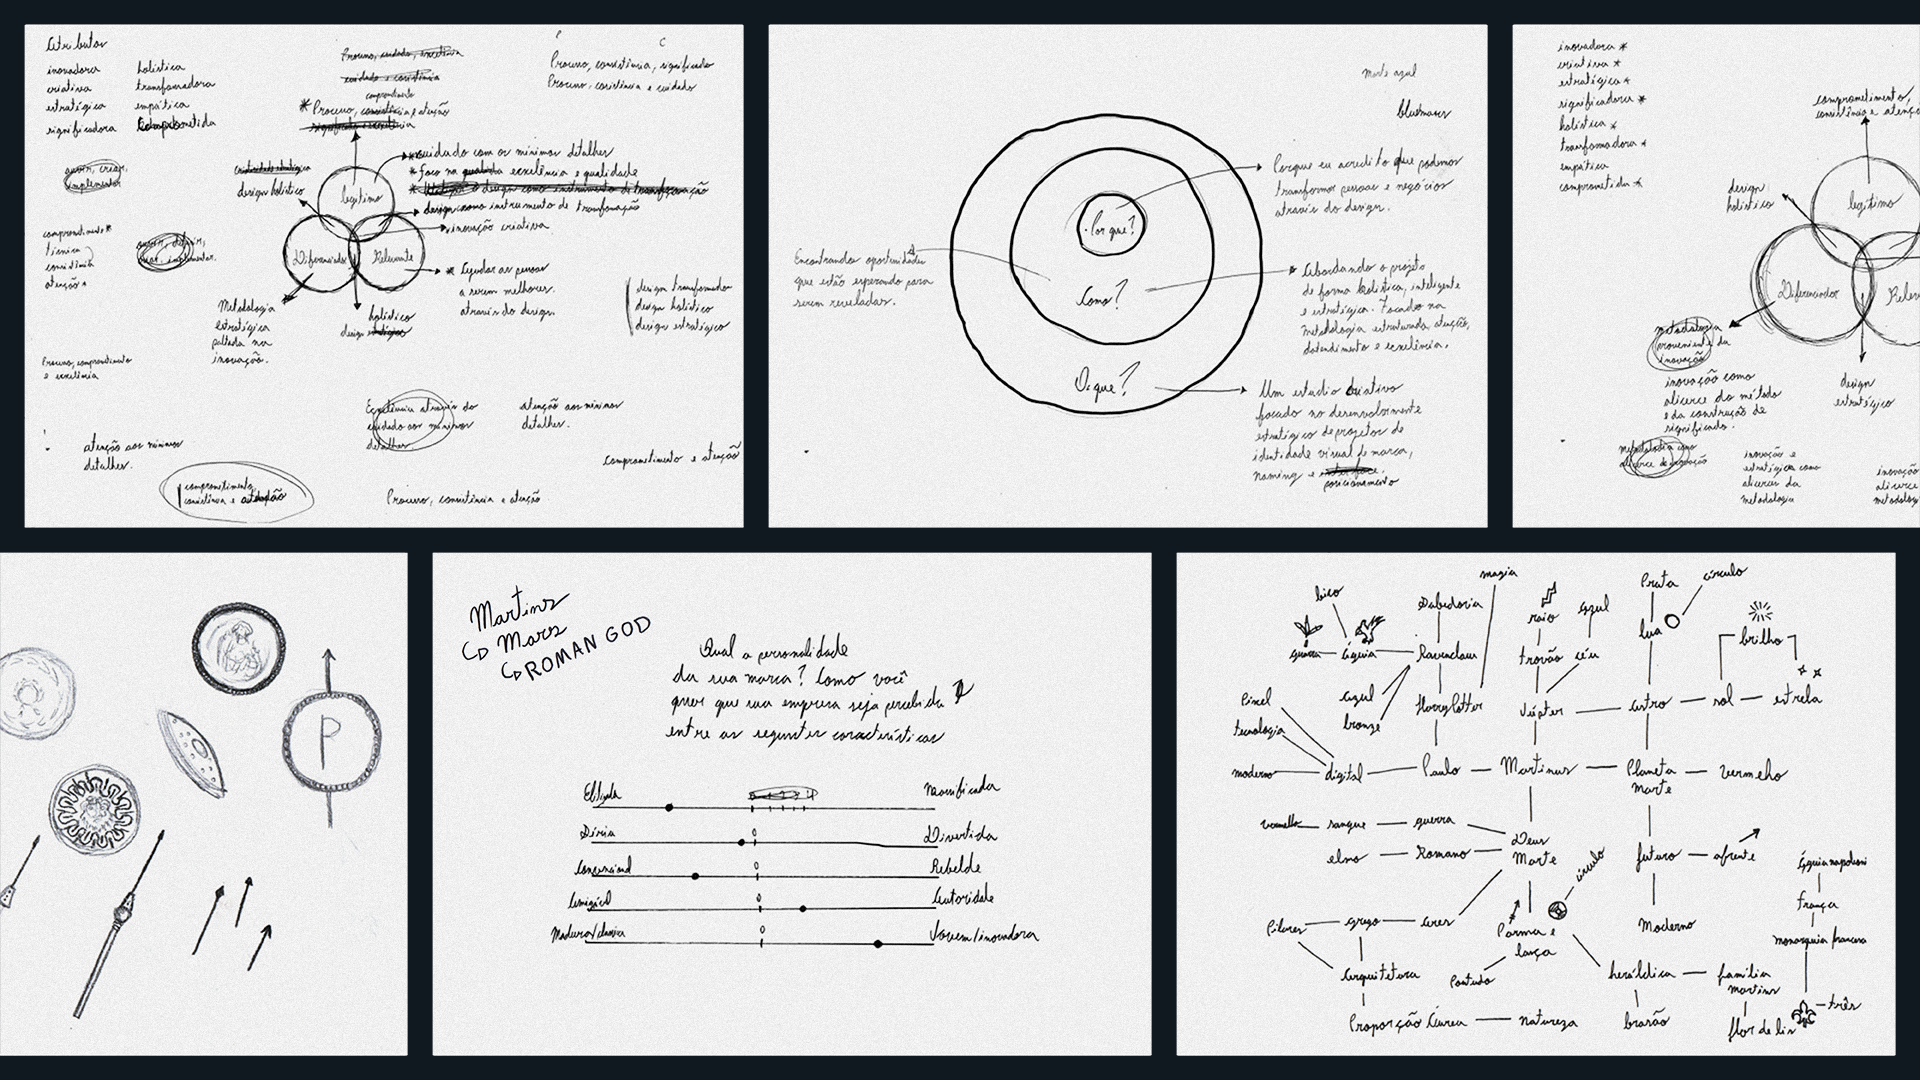 Atributos
inovadora
criativa
estratégica
significadora
holística
transformadora
empática
Comprometida
Processo, cuidado, excelência
cuidado e consistência
comprometimento
* Processo, consistência e atenção
P
C
Processo, consistência, significador
Processo, consistência e cuidado
ouvir, criar,
implementar
design holístico
legítimo
Diferenciador
Relevante
* cuidado com os mínimos detalhes
* foco na qualidade excelência e qualidade
* design como instrumento de transformação
design como instrumento de transformação
inovação criativa
* Ajudar as pessoas
a serem melhores
através do design
comprometimento *
técnica
consistência
atenção *
Metodologia
estratégica
pautada na
inovação.
holístico
design estratégico
design transformador
design holístico
design estratégico
Processo, comprometimento
e excelência
Excelência através do
cuidado aos mínimos
detalhes
atenção aos mínimos
detalhes.
atenção aos mínimos
detalhes.
comprometimento e atenção
comprometimento,
consistência e atenção
Processo, consistência e atenção
marte azul
bluemars
Por que?
Como?
O que?
Porque eu acredito que podemos
transformar pessoas e negócios
através do design.
Encontrando oportunidades
que estão esperando para
serem reveladas.
Abordando o projeto
de forma holística, inteligente
e estratégica. Focado na
metodologia estruturada, atenção,
atendimento e excelência.
Um estudio criativo
focado no desenvolvimento
estratégico de projetos de
identidade visual de marca,
naming e interface.
posicionamento
inovadora *
criativa *
estratégica *
significadora *
holística *
transformadora *
empática
comprometida *
comprometimento,
consistência e atenç
design
holístico
legítimo
Diferenciador
Relev
metodologia
proveniente da
inovação
inovação como
alicerce do método
e da construção de
significado.
metodologia como
alicerce de inovação
design
estratégico
inovação e
estratégia como
alicerces da
metodologia
inovação
alicerce
metodolog
P
Martins
Mars
ROMAN GOD
Qual a personalidade
da sua marca? Como você
quer que sua empresa seja percebida
entre as seguintes características
Elitizada
Massificada
Séria
0
Divertida
Convencional
0
Rebelde
Amigável
0
Autoridade
Madura/clássica
0
Jovem/inovadora
magia
bico
Sabedoria
raio
azul
Prata
círculo
lua
brilho
guerra
águia
Ravenclaw
trovão
céu
Pixel
azul
bronze
Harry Potter
Júpiter
astro
sol
estrela
tecnologia
moderno
digital
Paulo
Martins
Planeta
Marte
Vermelho
vermelho
sangue
guerra
Deus
Marte
elmo
Romano
futuro
afrente
círculo
águia napoleon
França
Pilares
grego
ares
l'arma e
lança
Moderno
monarquia francesa
Arquitetura
Pontudo
heráldica
família
Martins
Proporção Áurea
natureza
brasão
flor de lis
três